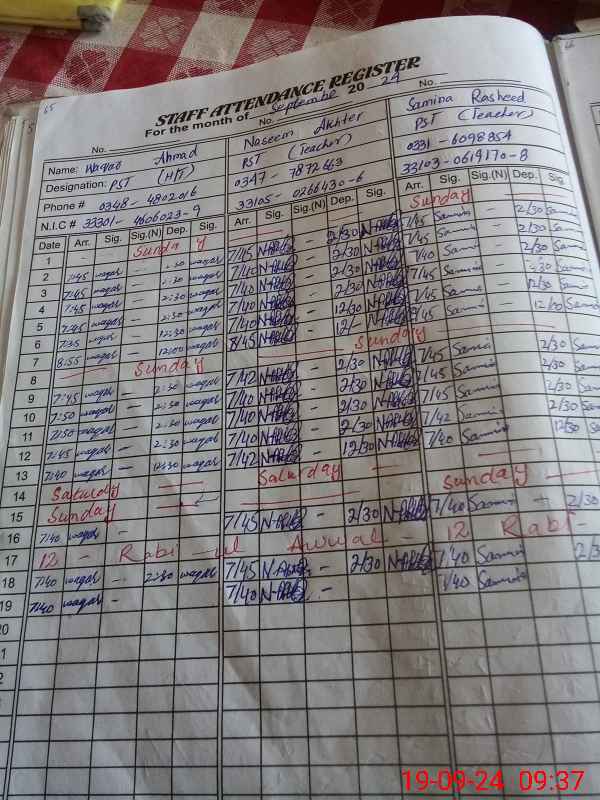 65
STAFF ATTENDANCE REGISTER
For the month of September 20 24
No. No. No.
Name: Waqar Ahmad (HT) Naseem Akhter Samina Rasheed
Designation: PST PST (Teacher) PST (Teacher)
Phone # 0348-4802016 0347-7872663 0331-6098854
N.I.C # 33301-4606023-9 33105-0266430-6 33103-0619170-8
Date Arr. Sig. Sig.(N) Dep. Sig. Arr. Sig. Sig.(N) Dep. Sig. Arr. Sig. Sig.(N) Dep. Sig.
1 Sunday Sunday
2 7:45 waqar - 2:30 waqar 7/45 - 2/30 7/45 Samina 2/30 Samina
3 7:45 waqar - 2:30 waqar 7/40 - 2/30 7/45 Samina 2/30 Samina
4 7:45 waqar - 2:30 waqar 7/40 - 2/30 7/40 Samina 2/30 Samina
5 7:45 waqar - 2:30 waqar 7/40 - 2/30 7/45 Samina 2/30 Samina
6 7:35 waqar - 12:30 waqar 7/40 - 12/30 7/45 Samina 12/30 Samina
7 8:55 waqar - 12:00 waqar 8/45 - 12/- 8/45 Samina 12/00 Samina
8 Sunday Sunday
9 7:45 waqar - 2:30 waqar 7/42 - 2/30 7/45 Samina 2/30 Samina
10 7:50 waqar - 2:30 waqar 7/40 - 2/30 7/45 Samina 2/30 Samina
11 7:50 waqar - 2:30 waqar 7/40 - 2/30 7/45 Samina 2/30 Samina
12 7:45 waqar - 2:30 waqar 7/40 - 2/30 7/42 Samina 2/30 Samina
13 7:40 waqar - 12:30 waqar 7/42 - 12/30 7/40 Samina 12/30 Samina
14 Saturday Saturday
15 Sunday Sunday
16 7:40 waqar - 7/45 - 2/30 7/40 Samina - 2/30
17 12 - Rabi-ul Awwal - 12 Rabi -
18 7/40 waqar - 2:30 waqar 7/45 - 2/30 7/40 Samina
19 7:40 waqar - 7/40 - 7/40 Samina
20
19-09-24 09:37